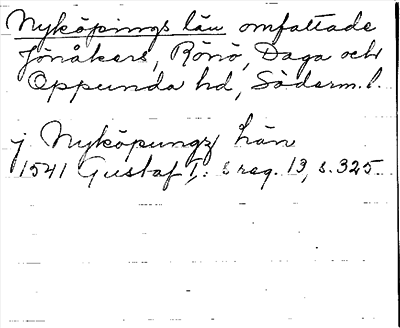 Nyköpings län omfattade
Jönåkers, Rönö, Daga och
Oppunda hd, Söderm. l.
j Nyköpungz län
1541 Gustaf I:s reg. 13, s. 325.